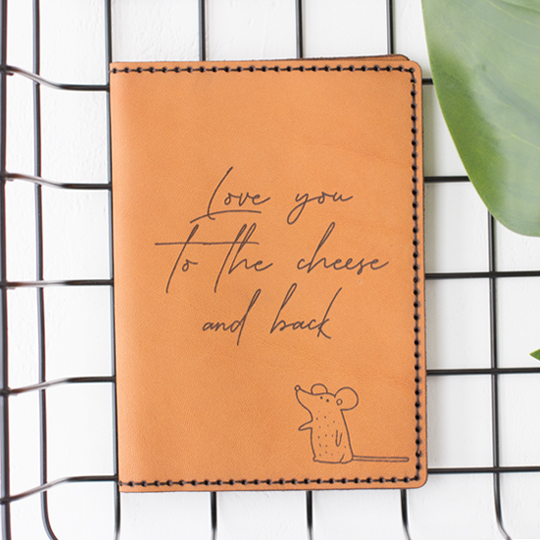 Love you
to the cheese
and back